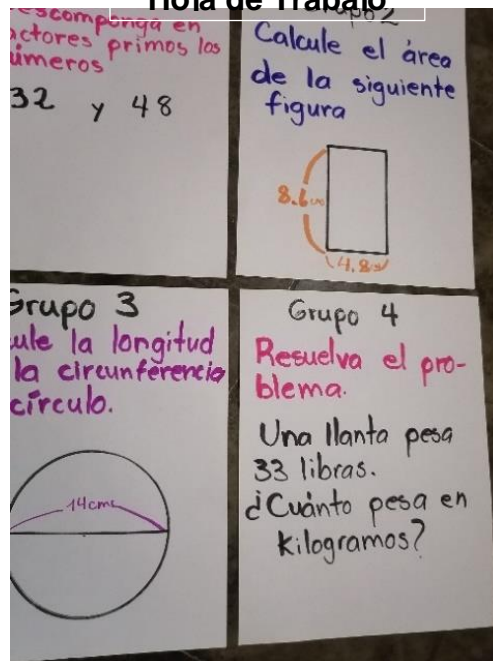 Hoja de Trabajo
escomponga en
actores primos los
úmeros
32 y 48
upo 2
Calcule el área
de la siguiente
figura
8.6
4.8
Grupo 3
ule la longitud
la circunferencia
círculo.
14cm
Grupo 4
Resuelva el pro-
blema.
Una llanta pesa
33 libras.
¿Cuánto pesa en
kilogramos?